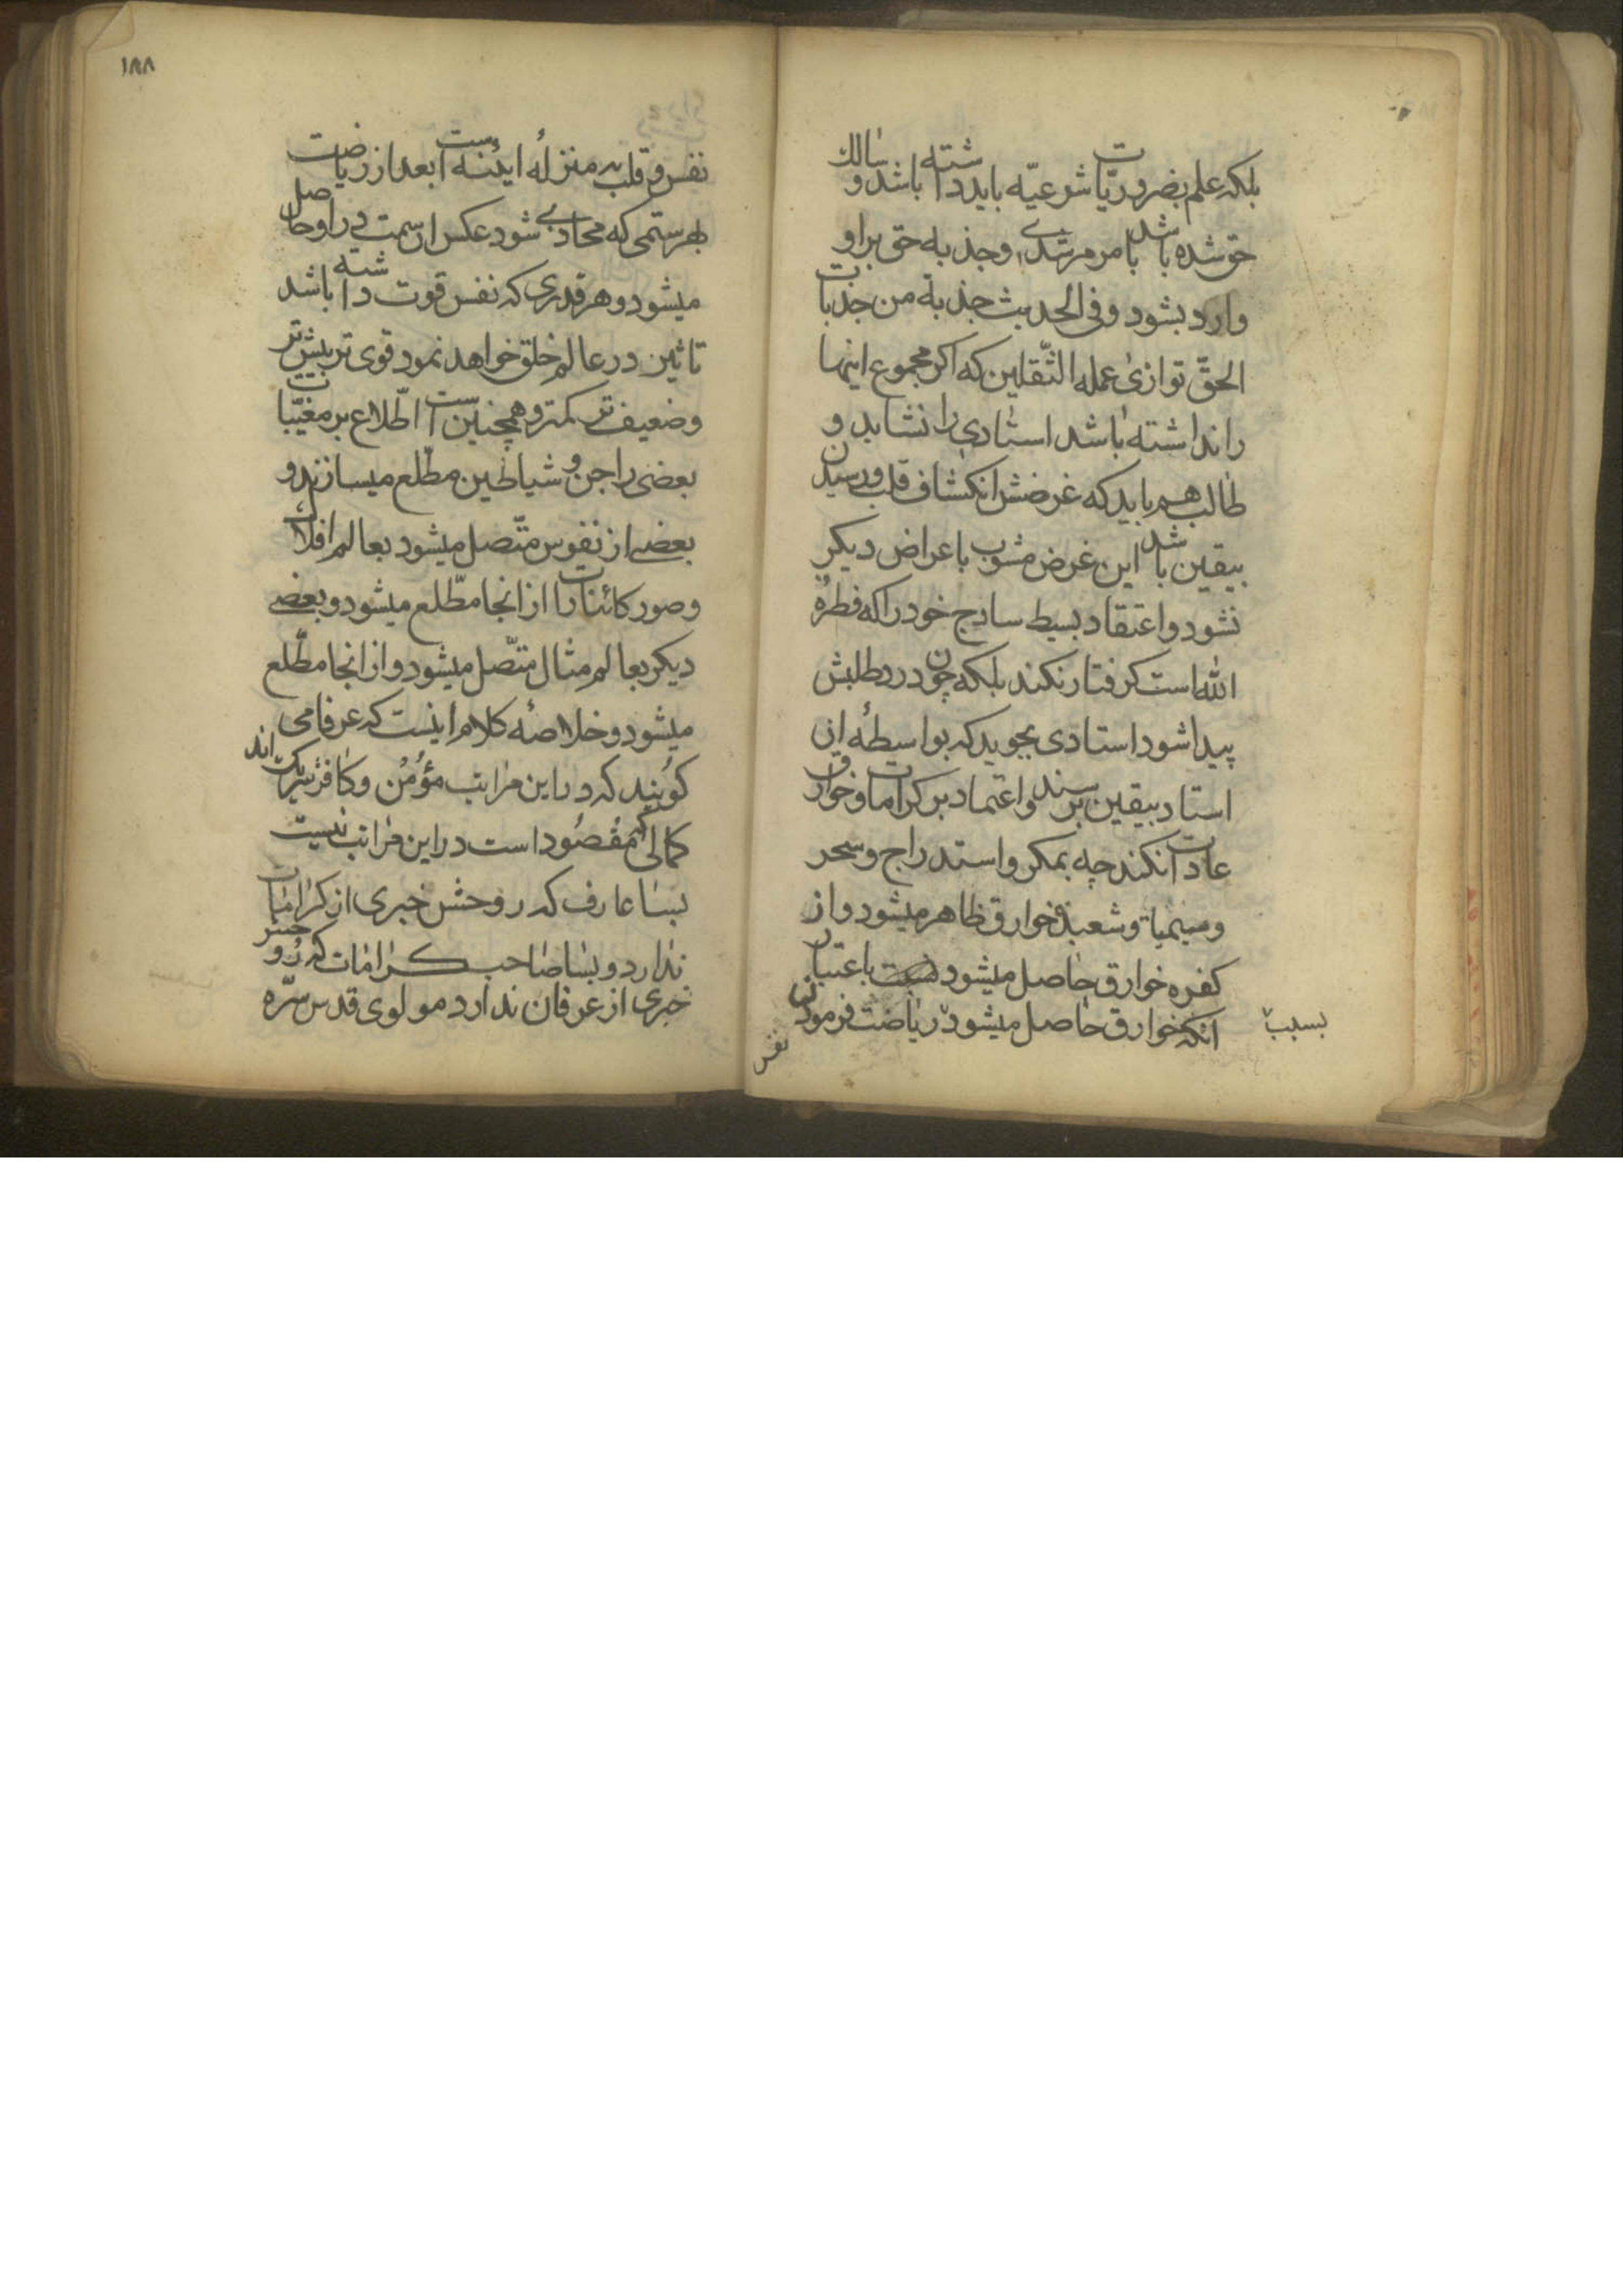 بلکه علم بضروریّات شرعیّه باید داشته باشد و سالك
حق شده باشد بامر مرشدی و جذبه حق بر او
وارد بشود و فی الحدیث جذبة من جذبات
الحقّ توازی عمل الثّقلین که اکر مجموع اینها
را نداشته باشد استادی را نشاید و
طالب هم باید که غرضش انکشاف قلب و رسیدن
بیقین باشد این غرض مشوب باعراض دیکر
نشود و اعتقاد بسیط ساذج خود را که فطرة
الله است کرفتار نکند بلکه چون درد طلبش
پیدا شود استادی بجوید که بواسطهٔ ان
استاد بیقین برسند و اعتماد بر کرامات و خوارق
عادات نکند چه بمکر و استدراج و سحر
و سیمیا و شعبذه خوارق ظاهر میشود و از
کفره خوارق حاصل میشود باعتبار
انکه خوارق حاصل میشود ریاضت فرمودن
بسبب
نفس
۱۸۸
نفس و قلب به منزلهٔ اینه است بعد از ریاضت
بهر سمتی که محاذی شود عکس ان سمت در او حاصل
میشود و هر قدری که نفس قوت داشته باشد
تاثیر در عالم خلق خواهد نمود قوی تر بیشتر
و ضعیف تر کمتر و همچنین است اطّلاع بر مغیّبات
بعضی را جن و شیاطین مطّلع میسازند و
بعضی از نفوس متّصل میشود بعالم افلاك
و صور کائنات را از انجا مطّلع میشود و بعضی
دیکر بعالم مثال متّصل میشود و از انجا مطّلع
میشود و خلاصهٔ کلام اینست که عرفا می
کویند که در این مراتب مؤمن و کافر شریك اند
کمالی که مقصود است در این مراتب نیست
بسا عارف که روحش خبری از کرامات
ندارد و بسا صاحب کرامات که روحش
خبری از عرفان ندارد مولوی قدس سرّه